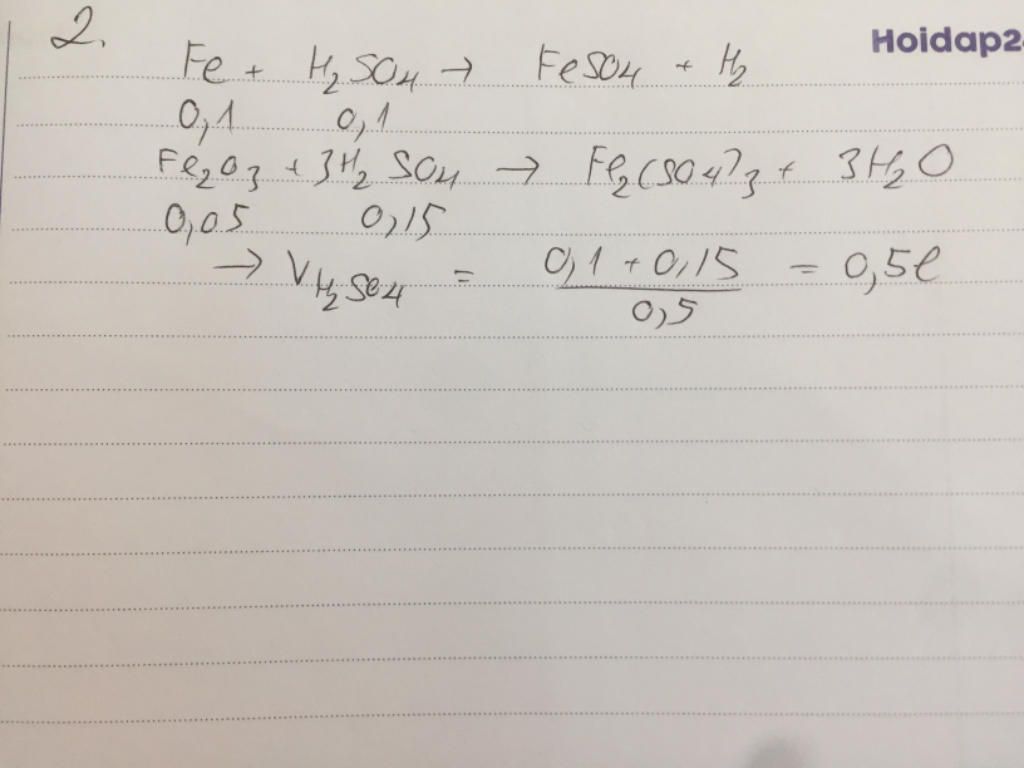 2.
Hoidap2
Fe + H₂SO₄ → FeSO₄ + H₂
0,1 0,1
Fe₂O₃ + 3H₂SO₄ → Fe₂(SO₄)₃ + 3H₂O
0,05 0,15
→ V H₂SO₄ = (0,1 + 0,15)/0,5 = 0,5l